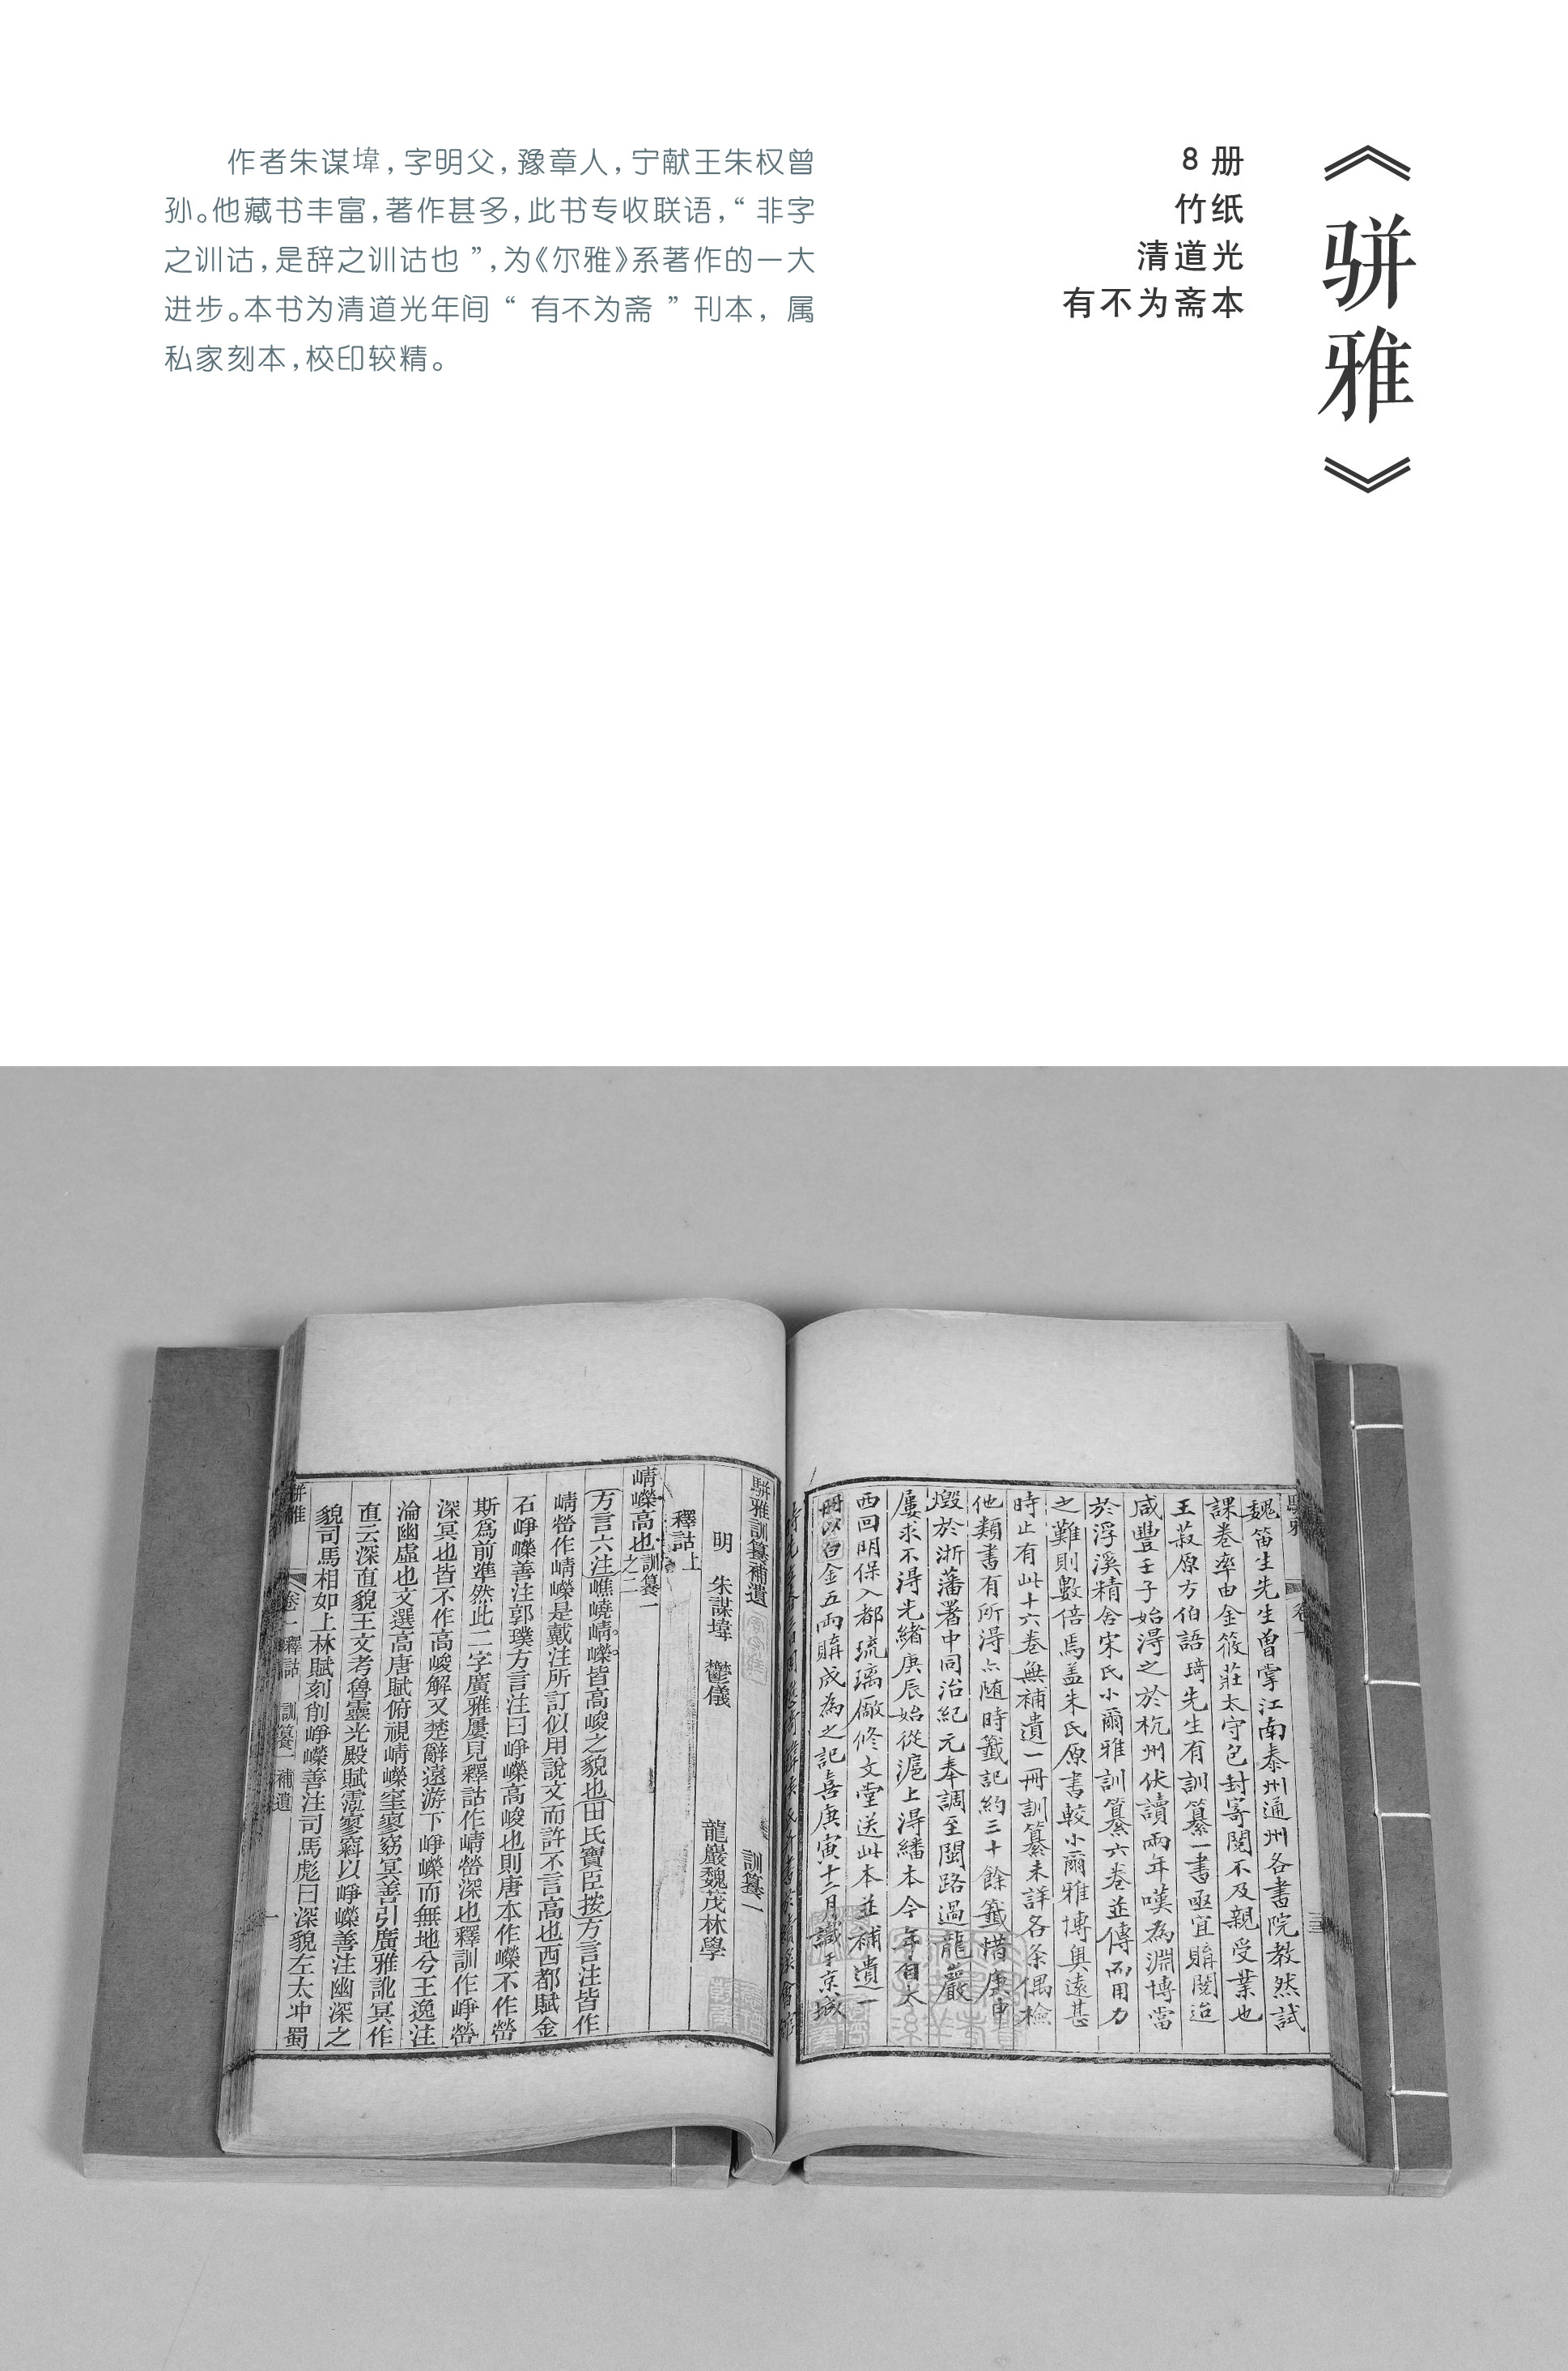 《骈雅》
8 册
竹纸
清道光
有不为斋本
作者朱谋㙔，字明父，豫章人，宁献王朱权曾
孙。他藏书丰富，著作甚多，此书专收联语，“ 非字
之训诂，是辞之训诂也 ”，为《尔雅》系著作的一大
进步。本书为清道光年间 “ 有不为斋 ” 刊本， 属
私家刻本，校印较精。
魏笛生先生曾掌江南泰州通州各書院教然試
課卷率由金筱莊太守包封寄閱不及親受業也
王菽原方伯語琦先生有訓纂一書亟宜購閱迨
咸豐壬子始淂之於杭州伏讀兩年嘆為淵博當
於浮溪精舍宋氏小爾雅訓纂六卷並傳而用力
之難則數倍焉盖朱氏原書較小爾雅博奧遠甚
時止有此十六卷無補遺一冊訓纂未詳各条偶檢
他類書有所淂亦随時籤記約三十餘籤惜庚申
燬於浙藩署中同治紀元奉調至閩路過龍巖
屢求不淂光緒庚辰始從滬上淂繙本今年自大
西回明保入都琉璃廠修文堂送此本並補遺一
冊以白金五兩購成為之記喜庚寅十二月識于京城
駢雅訓纂補遺 訓纂一
明 朱謀㙔 鬱儀 龍巖魏茂林學
釋詁上
崝嶸高也訓纂一之二
方言六注嶕嶢崝嶸皆高峻之貌也田氏寶臣按方言注皆作
崝嵤作崝嶸是戴注所訂似用說文而許不言高也西都賦金
石崢嶸善注郭璞方言注曰崢嶸高峻也則唐本作嶸不作嵤
斯爲前準然此二字廣雅屢見釋詁作崝嵤深也釋訓作崢嵤
深冥也皆不作高峻解又楚辭遠游下崢嶸而無地兮王逸注
淪幽虛也文選高唐賦俯視崝嶸窐寥窈冥善引廣雅訛冥作
直云深直貌王文考魯靈光殿賦霐寥窲以崢嶸善注幽深之
貌司馬相如上林賦刻削崢嶸善注司馬彪曰深貌左太冲蜀
駢雅 卷一 釋詁 訓纂一 補遺 一